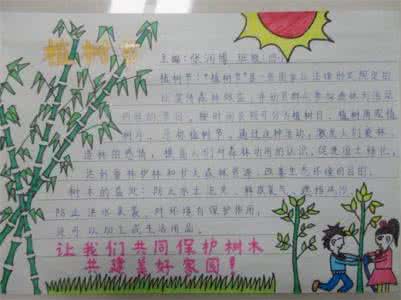 植树节
主编:张润博 班级:四
植树节:"植树节"是一些国家以法律形式规定的
以宣传森林效益,并动员群众参加造林为活动
内容的节日,按时间长短可分为植树日、植树周或植
树月,总称植树节。通过这种活动,激发人们爱林、
造林的感情,提高人们对森林功用的认识,促进国土绿化,
达到爱林护林和扩大森林资源、改善生态环境的目的。
树木的益处:防止水土流失,释放氧气,
防止洪水泛滥,对环境有保护作用,
还可以加工成生活用品。
让我们共同保护树木
共建美好家园!